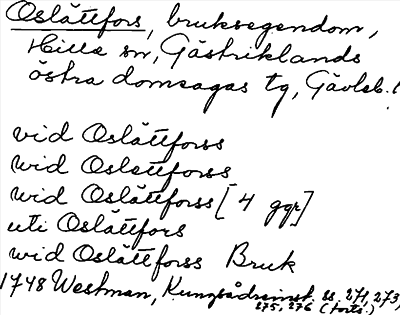 Oslättfors, bruksegendom,
Hille sn, Gästriklands
östra domsagas tg, Gävleb. l.
vid Oslåttforss
wid Oslettforss
wid Oslåttforss [4 ggr]
uti Oslåttfors
wid Oslåttforss Bruk
1748 Westman, Kungsådreinst. ss. 271, 273,
275, 276 (forts.)